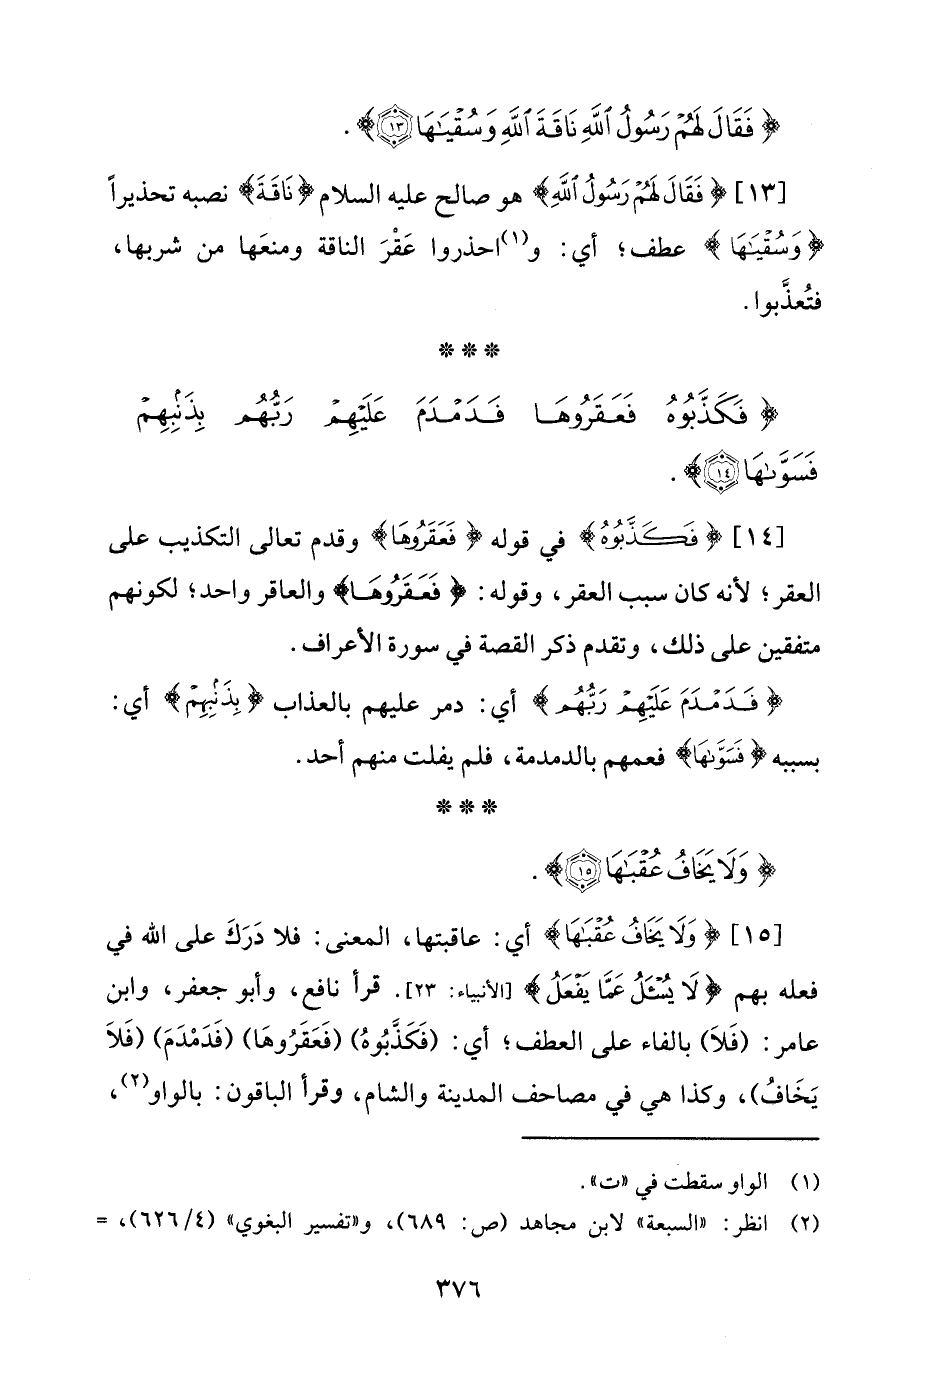 ﴿ فَقَالَ لَهُمْ رَسُولُ ٱللَّهِ نَاقَةَ ٱللَّهِ وَسُقْيَـٰهَا ١٣﴾ .
[١٣] ﴿ فَقَالَ لَهُمْ رَسُولُ ٱللَّهِ﴾ هو صالح عليه السلام ﴿نَاقَةَ﴾ نصبه تحذيراً
﴿ وَسُقْيَـٰهَا ﴾ عطف؛ أي: و(١)احذروا عَقْرَ الناقة ومنعَها من شربها،
فتُعذَّبوا.
* * *
﴿ فَكَذَّبُوهُ فَعَقَرُوهَا فَدَمْدَمَ عَلَيْهِمْ رَبُّهُم بِذَنۢبِهِمْ
فَسَوَّىٰهَا ١٤﴾ .
[١٤] ﴿ فَكَذَّبُوهُ﴾ في قوله ﴿ فَعَقَرُوهَا﴾ وقدم تعالى التكذيب على
العقر؛ لأنه كان سبب العقر، وقوله: ﴿ فَعَقَرُوهَا﴾ والعاقر واحد؛ لكونهم
متفقين على ذلك، وتقدم ذكر القصة في سورة الأعراف.
﴿ فَدَمْدَمَ عَلَيْهِمْ رَبُّهُم ﴾ أي: دمر عليهم بالعذاب ﴿ بِذَنۢبِهِمْ ﴾ أي:
بسببه ﴿ فَسَوَّىٰهَا﴾ فعمهم بالدمدمة، فلم يفلت منهم أحد.
* * *
﴿ وَلَا يَخَافُ عُقْبَـٰهَا ١٥﴾ .
[١٥] ﴿ وَلَا يَخَافُ عُقْبَـٰهَا﴾ أي: عاقبتها، المعنى: فلا دَرَكَ على الله في
فعله بهم ﴿ لَا يُسْـَٔلُ عَمَّا يَفْعَلُ ﴾ [الأنبياء: ٢٣]. قرأ نافع، وأبو جعفر، وابن
عامر: (فَلاَ) بالفاء على العطف؛ أي: (فَكَذَّبُوهُ) (فَعَقَرُوهَا) (فَدَمْدَمَ) (فَلاَ
يَخَافُ)، وكذا هي في مصاحف المدينة والشام، وقرأ الباقون: بالواو(٢)،
(١) الواو سقطت في «ت».
(٢) انظر: «السبعة» لابن مجاهد (ص: ٦٨٩)، و«تفسير البغوي» (٤/ ٦٢٦)، =
٣٧٦